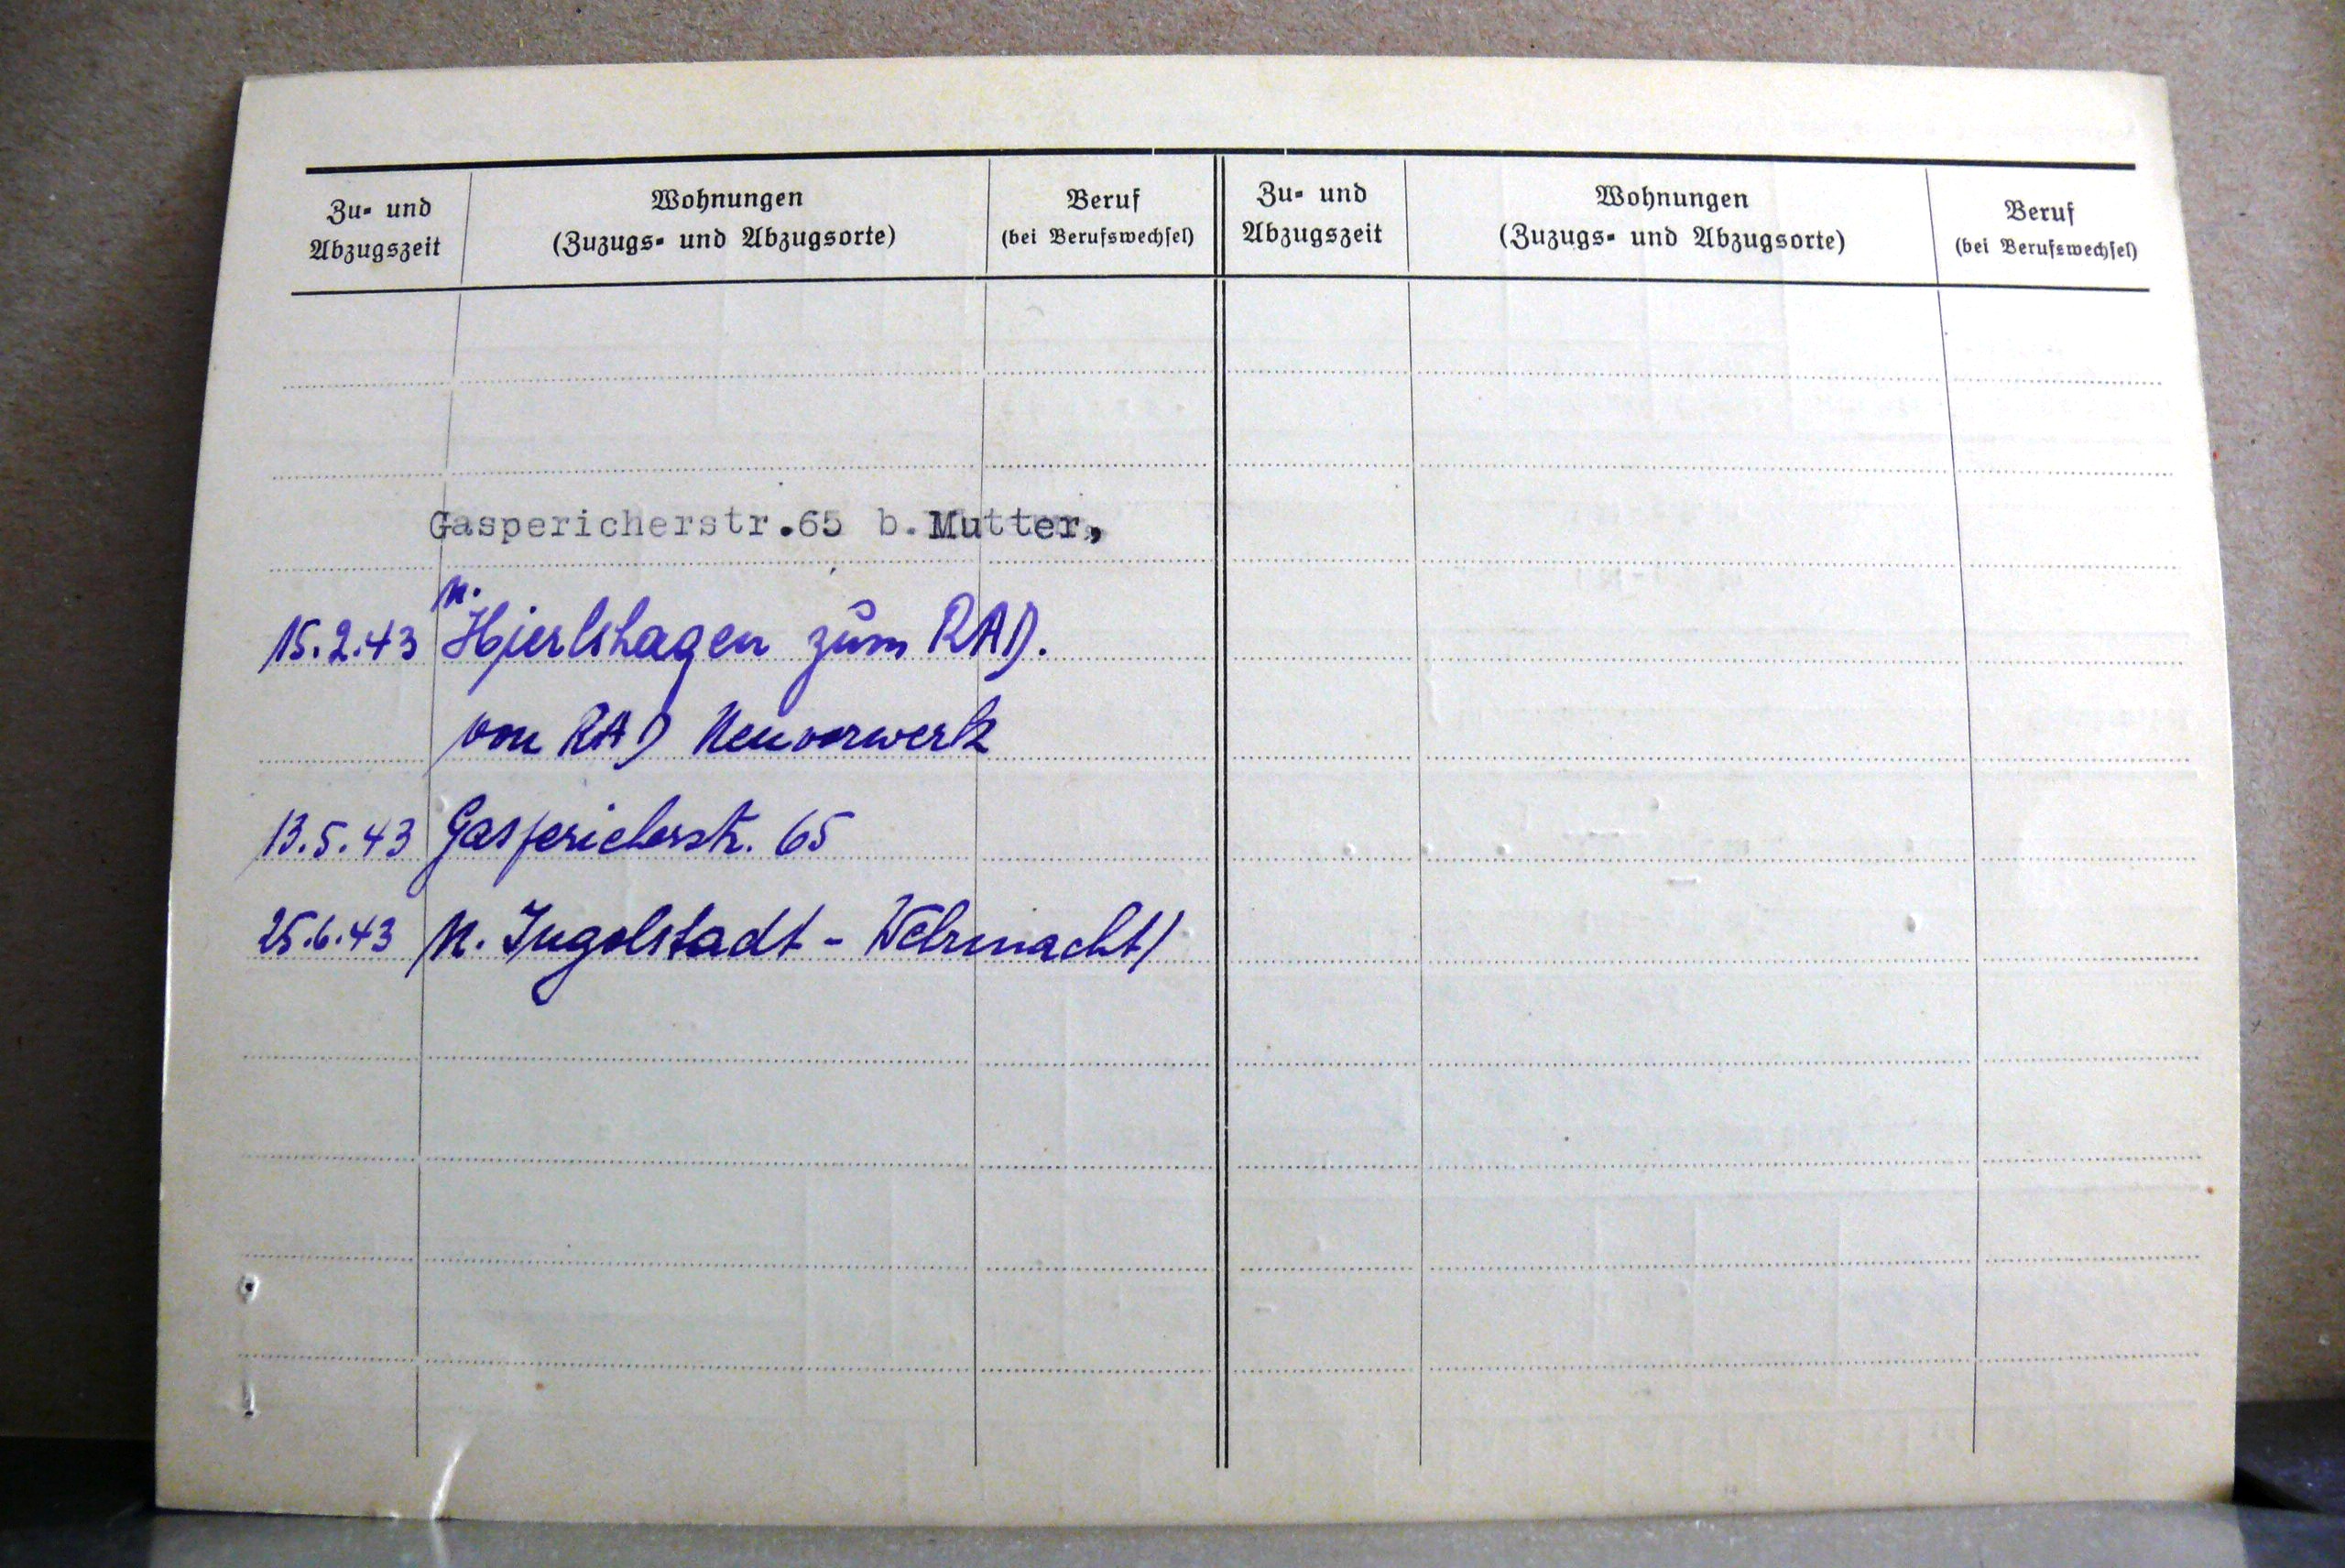 Zu- und Abzugszeit
Wohnungen
(Zuzugs- und Abzugsorte)
Beruf
(bei Berufswechsel)
Zu- und Abzugszeit
Wohnungen
(Zuzugs- und Abzugsorte)
Beruf
(bei Berufswechsel)
Gaspericherstr.65 b.Mutter,
n.
15.2.43 Hierlshagen zum RAD.
von RAD Neuvorwerk
13.5.43 Gaspericherstr. 65
25.6.43 n. Ingolstadt - Wehrmacht/